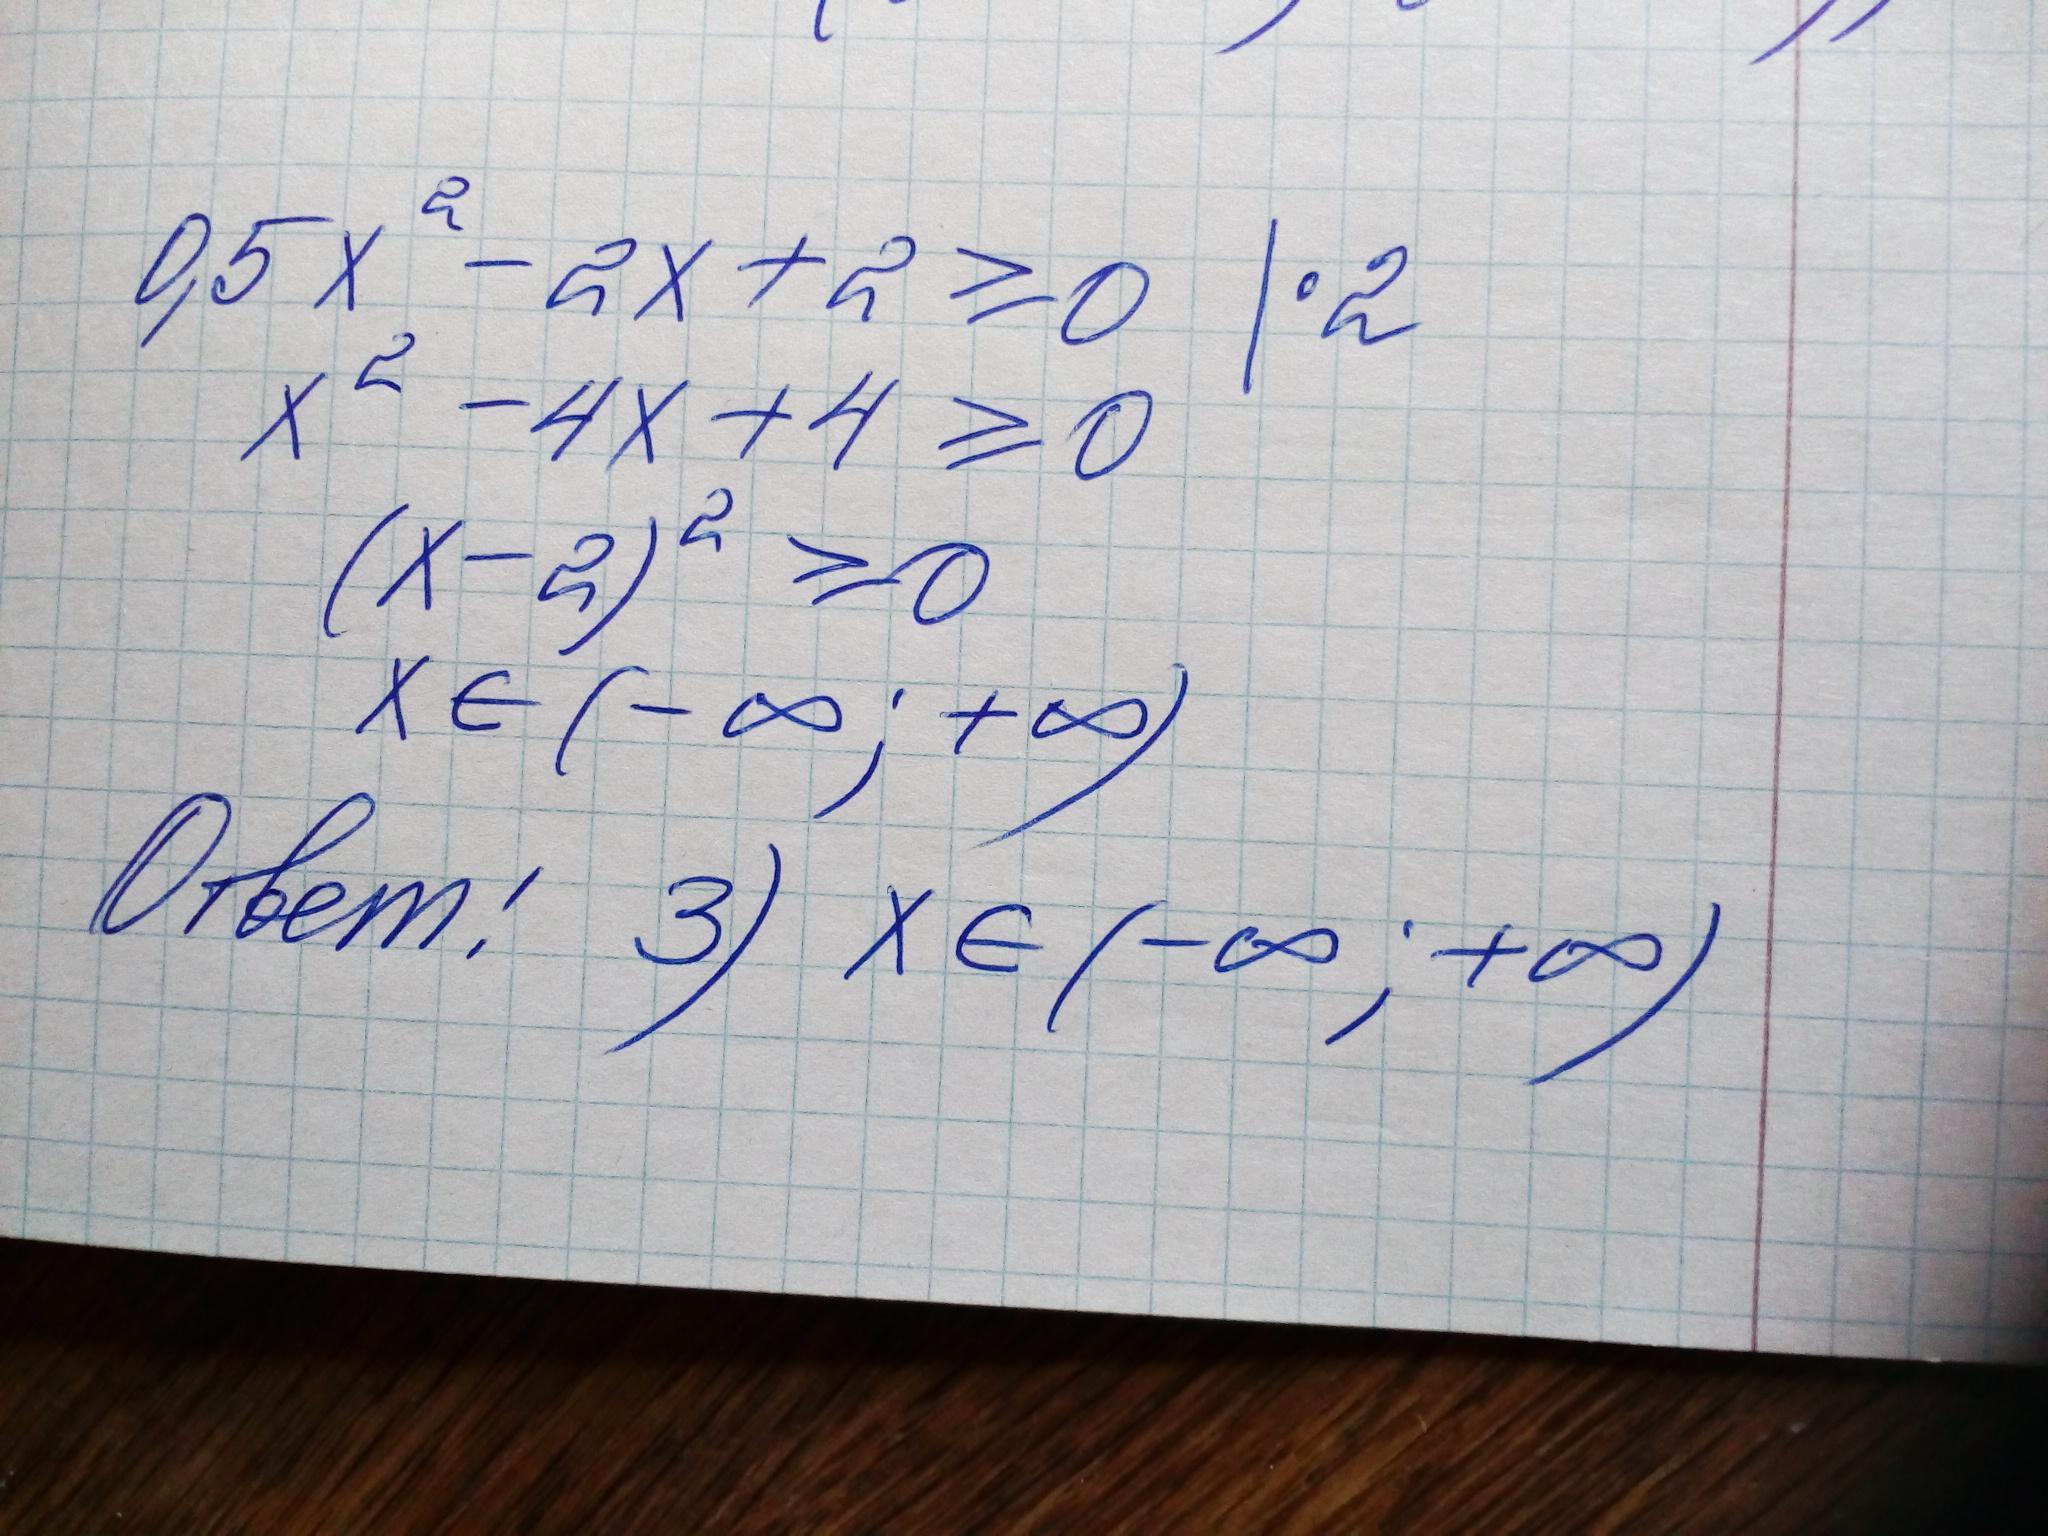 0,5x² - 2x + 2 ⩾ 0 | · 2
x² - 4x + 4 ⩾ 0
(x - 2)² ⩾ 0
x ∈ (-∞; +∞)
Ответ: 3) x ∈ (-∞; +∞)